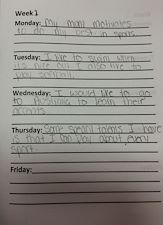 Week 1
Monday: My mom motivates
to do my best in sports.
Tuesday: I like to swim when
it's nice out I also like to
play softball.
Wednesday: I would like to go
to Australia to learn their
accents.
Thursday: Some special talents I have
is that I can play about every
sport.
Friday: